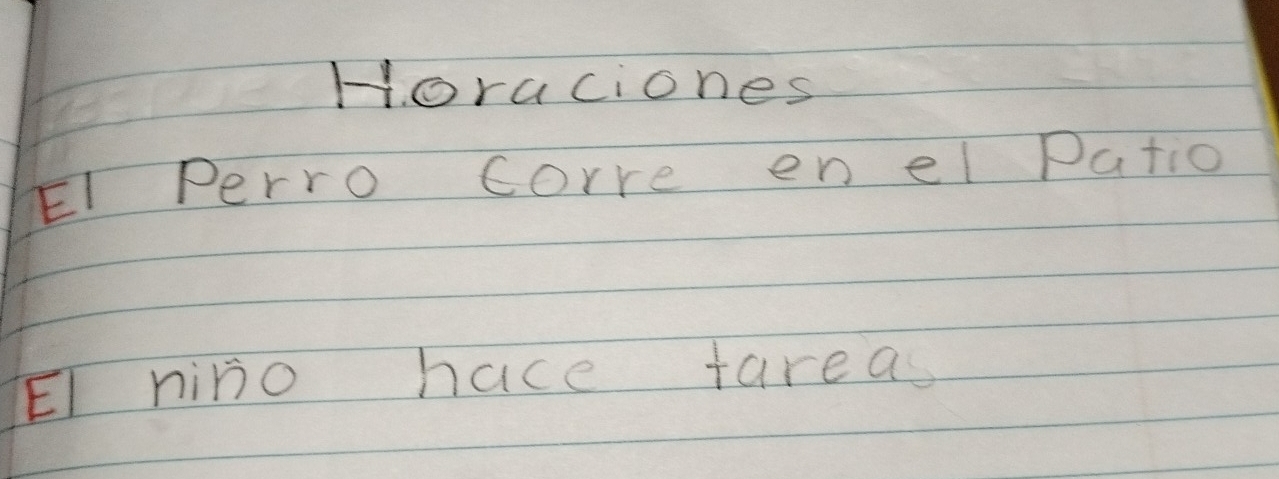 Horaciones
El Perro corre en el Patio
El niño hace tarea